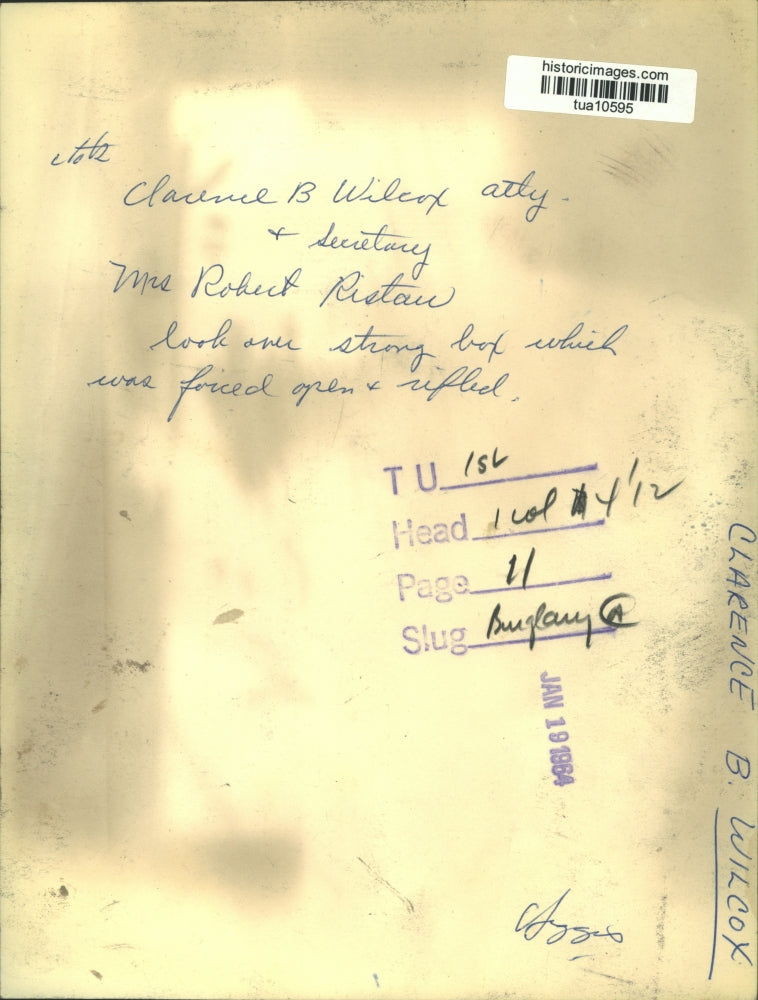 historicimages.com
tua10595
Clarence B Wilcox atty.
+ Secretary
Mrs Robert Ristau
look over strong box which
was forced open + rifled.
TU 1st
Head 1 col 4 1/2
Page 11
Slug Burglary A
JAN 19 1964
CLARENCE B. WILCOX